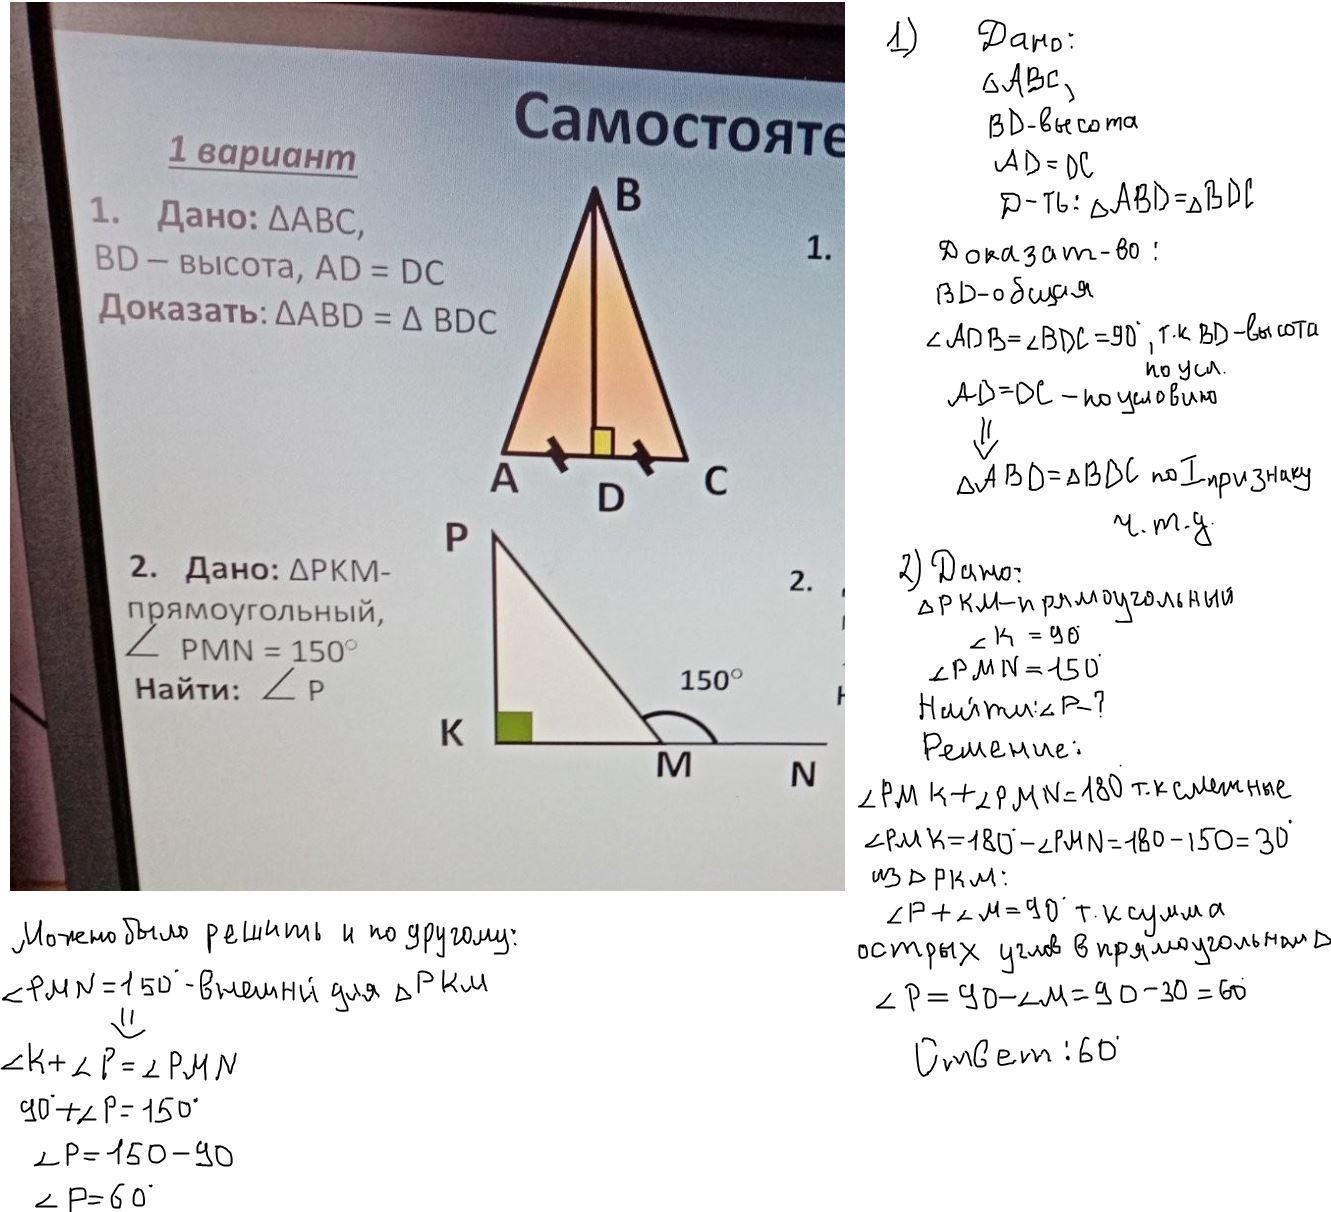 Самостояте
1 вариант
1. Дано: ΔABC,
BD – высота, AD = DC
Доказать: ΔABD = Δ BDC
B
A
D
C
1.
2. Дано: ΔPKM-
прямоугольный,
∠ PMN = 150°
Найти: ∠ P
P
K
M
N
150°
2.
1) Дано:
△ABC,
BD-высота
AD=DC
Д-ть: △ABD=△BDC
Доказат-во:
BD-общая
∠ADB=∠BDC=90°, т.к BD-высота
по усл.
AD=DC-по условию
⇓
△ABD=△BDC по I признаку
ч.т.д.
2) Дано:
△PKM-прямоугольный
∠K=90°
∠PMN=150°
Найти:∠P-?
Решение:
∠PMK+∠PMN=180° т.к смежные
∠PMK=180°-∠PMN=180-150=30°
из △PKM:
∠P+∠M=90° т.к сумма
острых углов в прямоугольном △
∠P=90-∠M=90-30=60°
Ответ:60°
Можно было решить и по другому:
∠PMN=150°-внешний для △PKM
⇓
∠K+∠P=∠PMN
90°+∠P=150°
∠P=150-90
∠P=60°